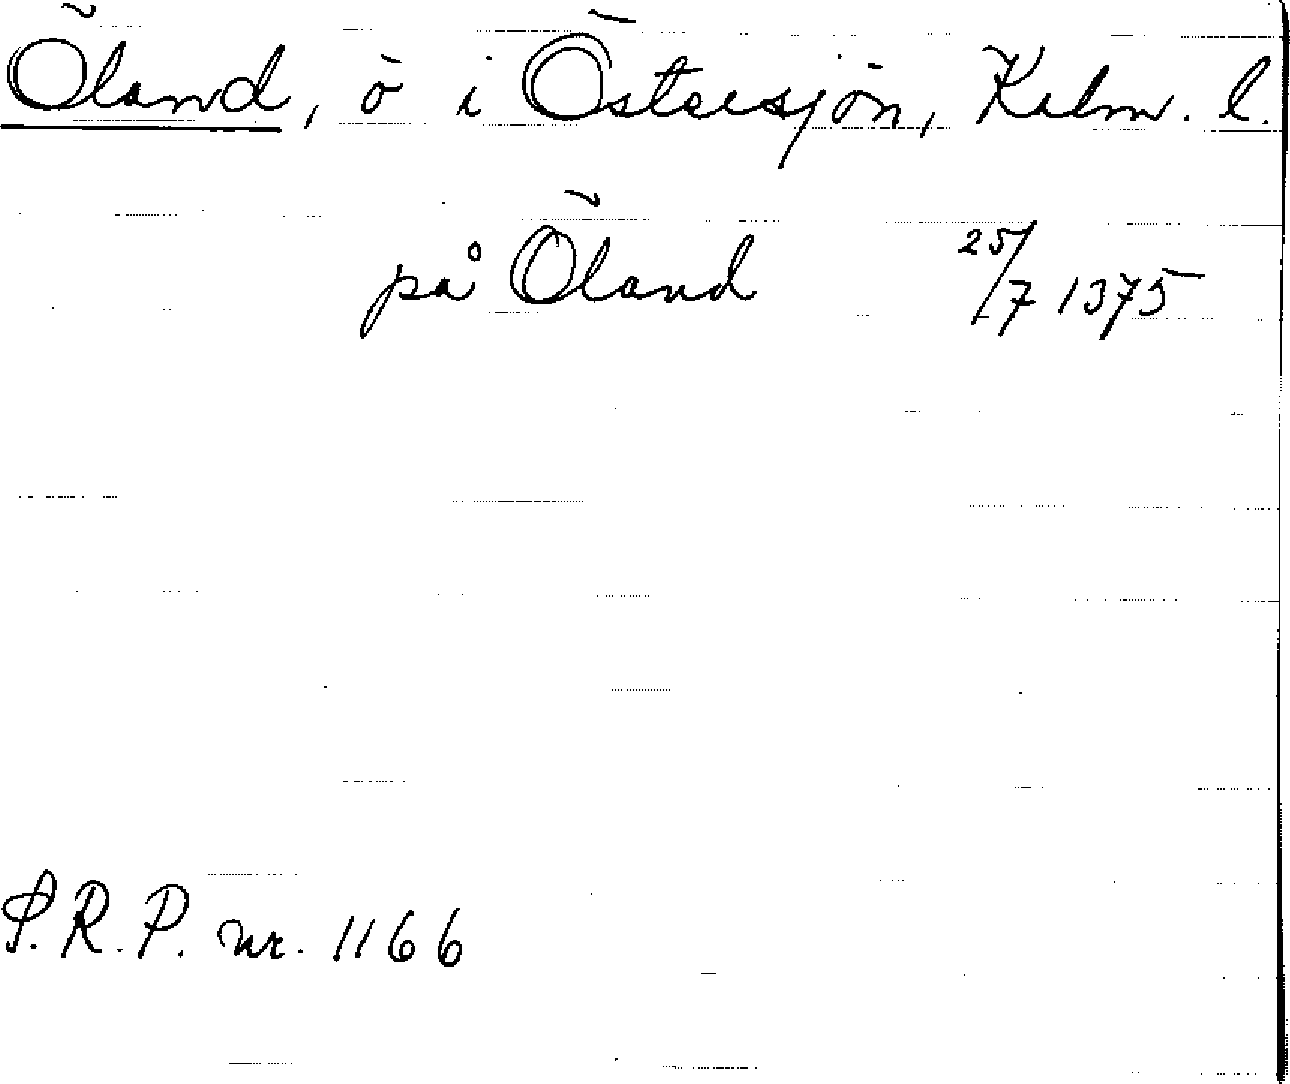 Öland, ö i Östersjön, Kalm. l.
på Öland 25/7 1375
S.R.P. nr. 1166